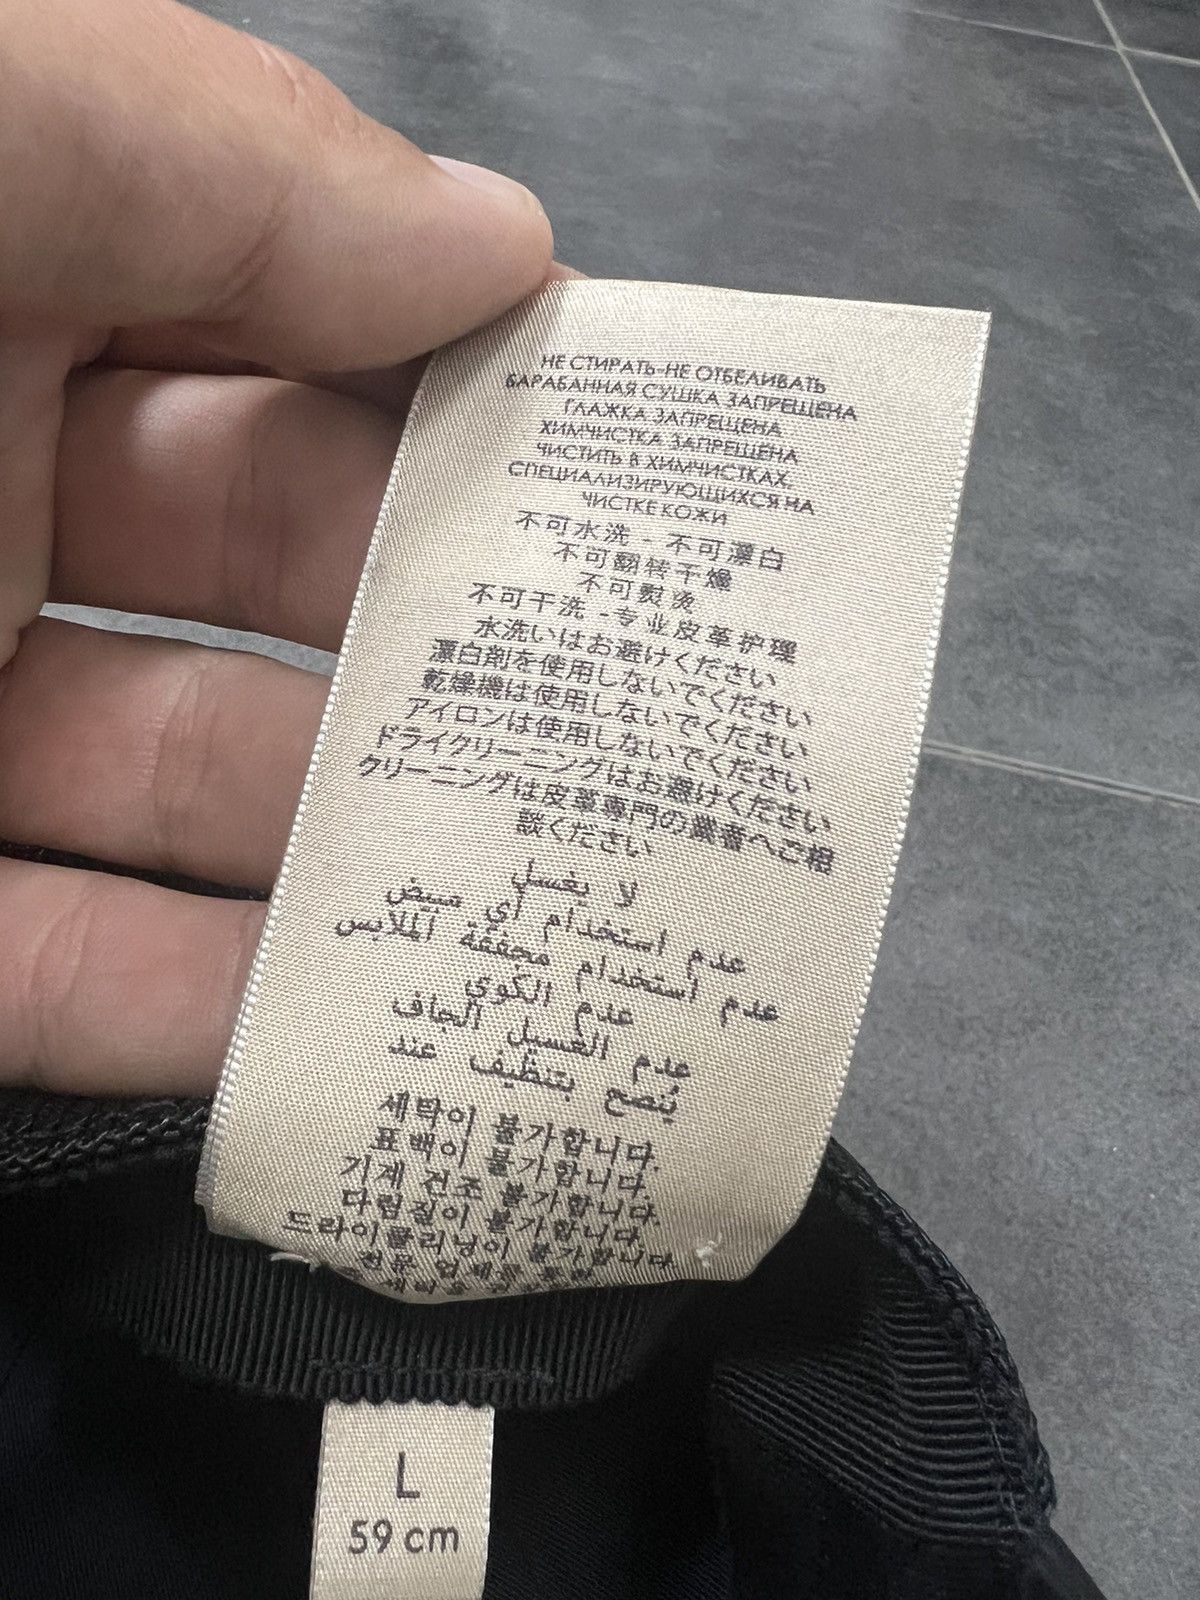 НЕ СТИРАТЬ-НЕ ОТБЕЛИВАТЬ
БАРАБАННАЯ СУШКА ЗАПРЕЩЕНА
ГЛАЖКА ЗАПРЕЩЕНА
ХИМЧИСТКА ЗАПРЕЩЕНА
ЧИСТИТЬ В ХИМЧИСТКАХ,
СПЕЦИАЛИЗИРУЮЩИХСЯ НА
ЧИСТКЕ КОЖИ
不可水洗 - 不可漂白
不可翻转干燥
不可熨烫
不可干洗 -专业皮革护理
水洗いはお避けください
漂白剤を使用しないでください
乾燥機は使用しないでください
アイロンは使用しないでください
ドライクリーニングはお避けください
クリーニングは皮革専門の業者へご相
談ください
لا يغسل
عدم استخدام أي مبيض
عدم استخدام مجففة الملابس
عدم الكوي
عدم الغسيل الجاف
يُنصح بتنظيف عند
세탁이 불가합니다.
표백이 불가합니다.
기계 건조 불가합니다.
다림질이 불가합니다.
드라이클리닝이 불가합니다.
전문 업체를 통한
L
59 cm